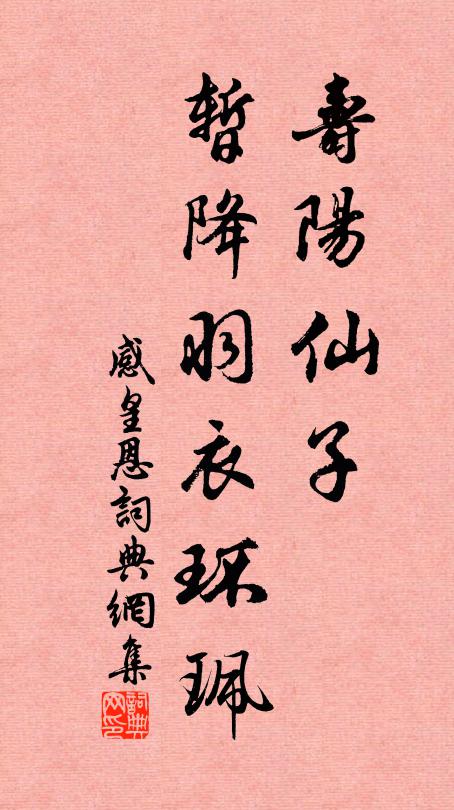 壽陽仙子
暫降羽衣环珮
感皇恩詞典網集
詞典网印